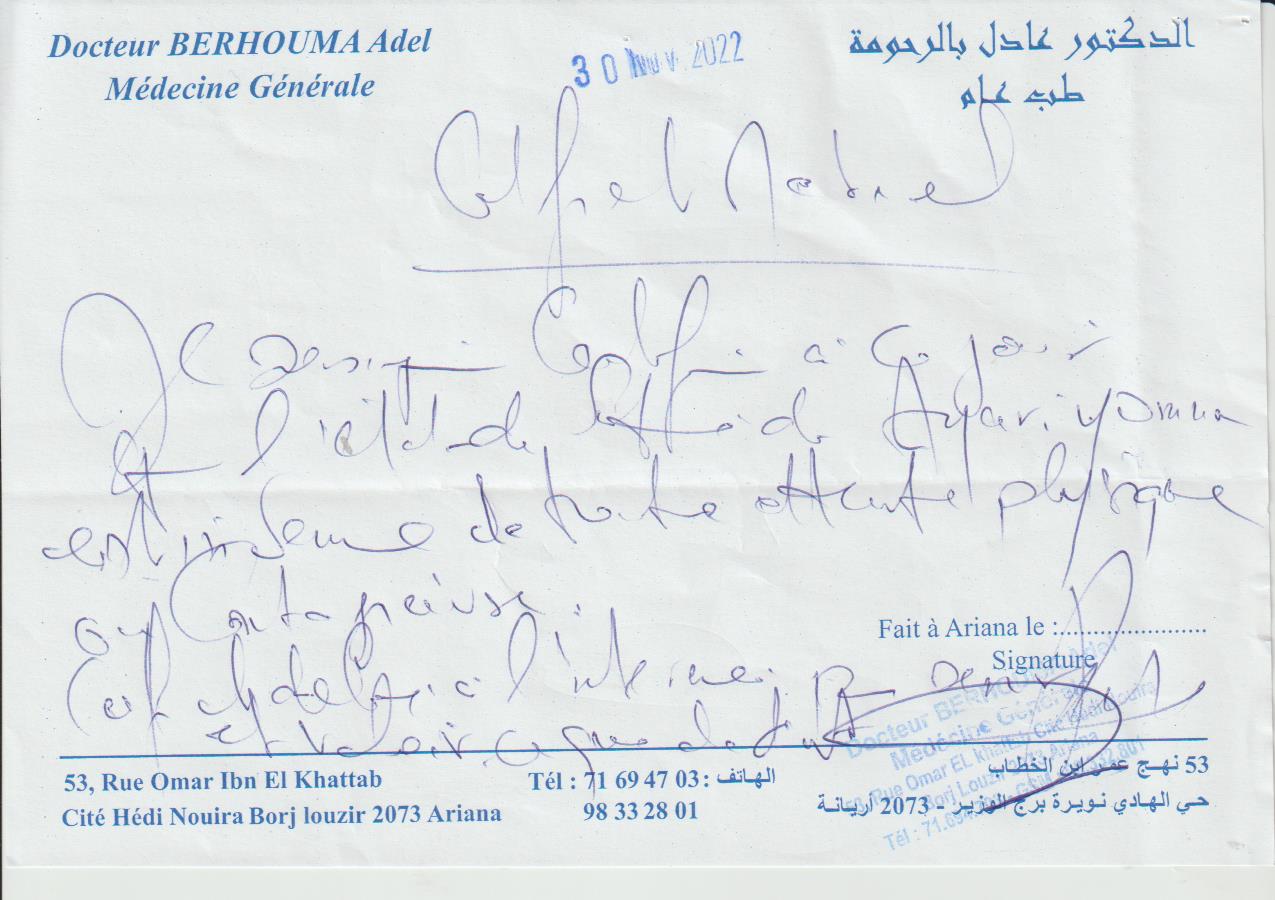 Docteur BERHOUMA Adel
Médecine Générale
30 Nov. 2022
الدكتور عادل بالرحومة
طب عام
Certificat Médical
Je soussigné certifie à ce jour
l'état de de Ayari Yomna
est indemne de toute atteinte physique
ou contagieuse.
Certif délivré à l'intéressé pour servir
et valoir ce que de droit
Fait à Ariana le :......................
Signature
Docteur BERHOUMA Adel
Médecine Générale
Rue Omar EL Khattab Cité Hédi Nouira
Borj Louzir 2073 Ariana
53, Rue Omar Ibn El Khattab
Cité Hédi Nouira Borj louzir 2073 Ariana
Tél : 71 69 47 03 : الهاتف
98 33 28 01
53 نهـج عمر ابن الخطاب
حـي الهادي نـويـرة برج الوزيـر - 2073 أريـانـة